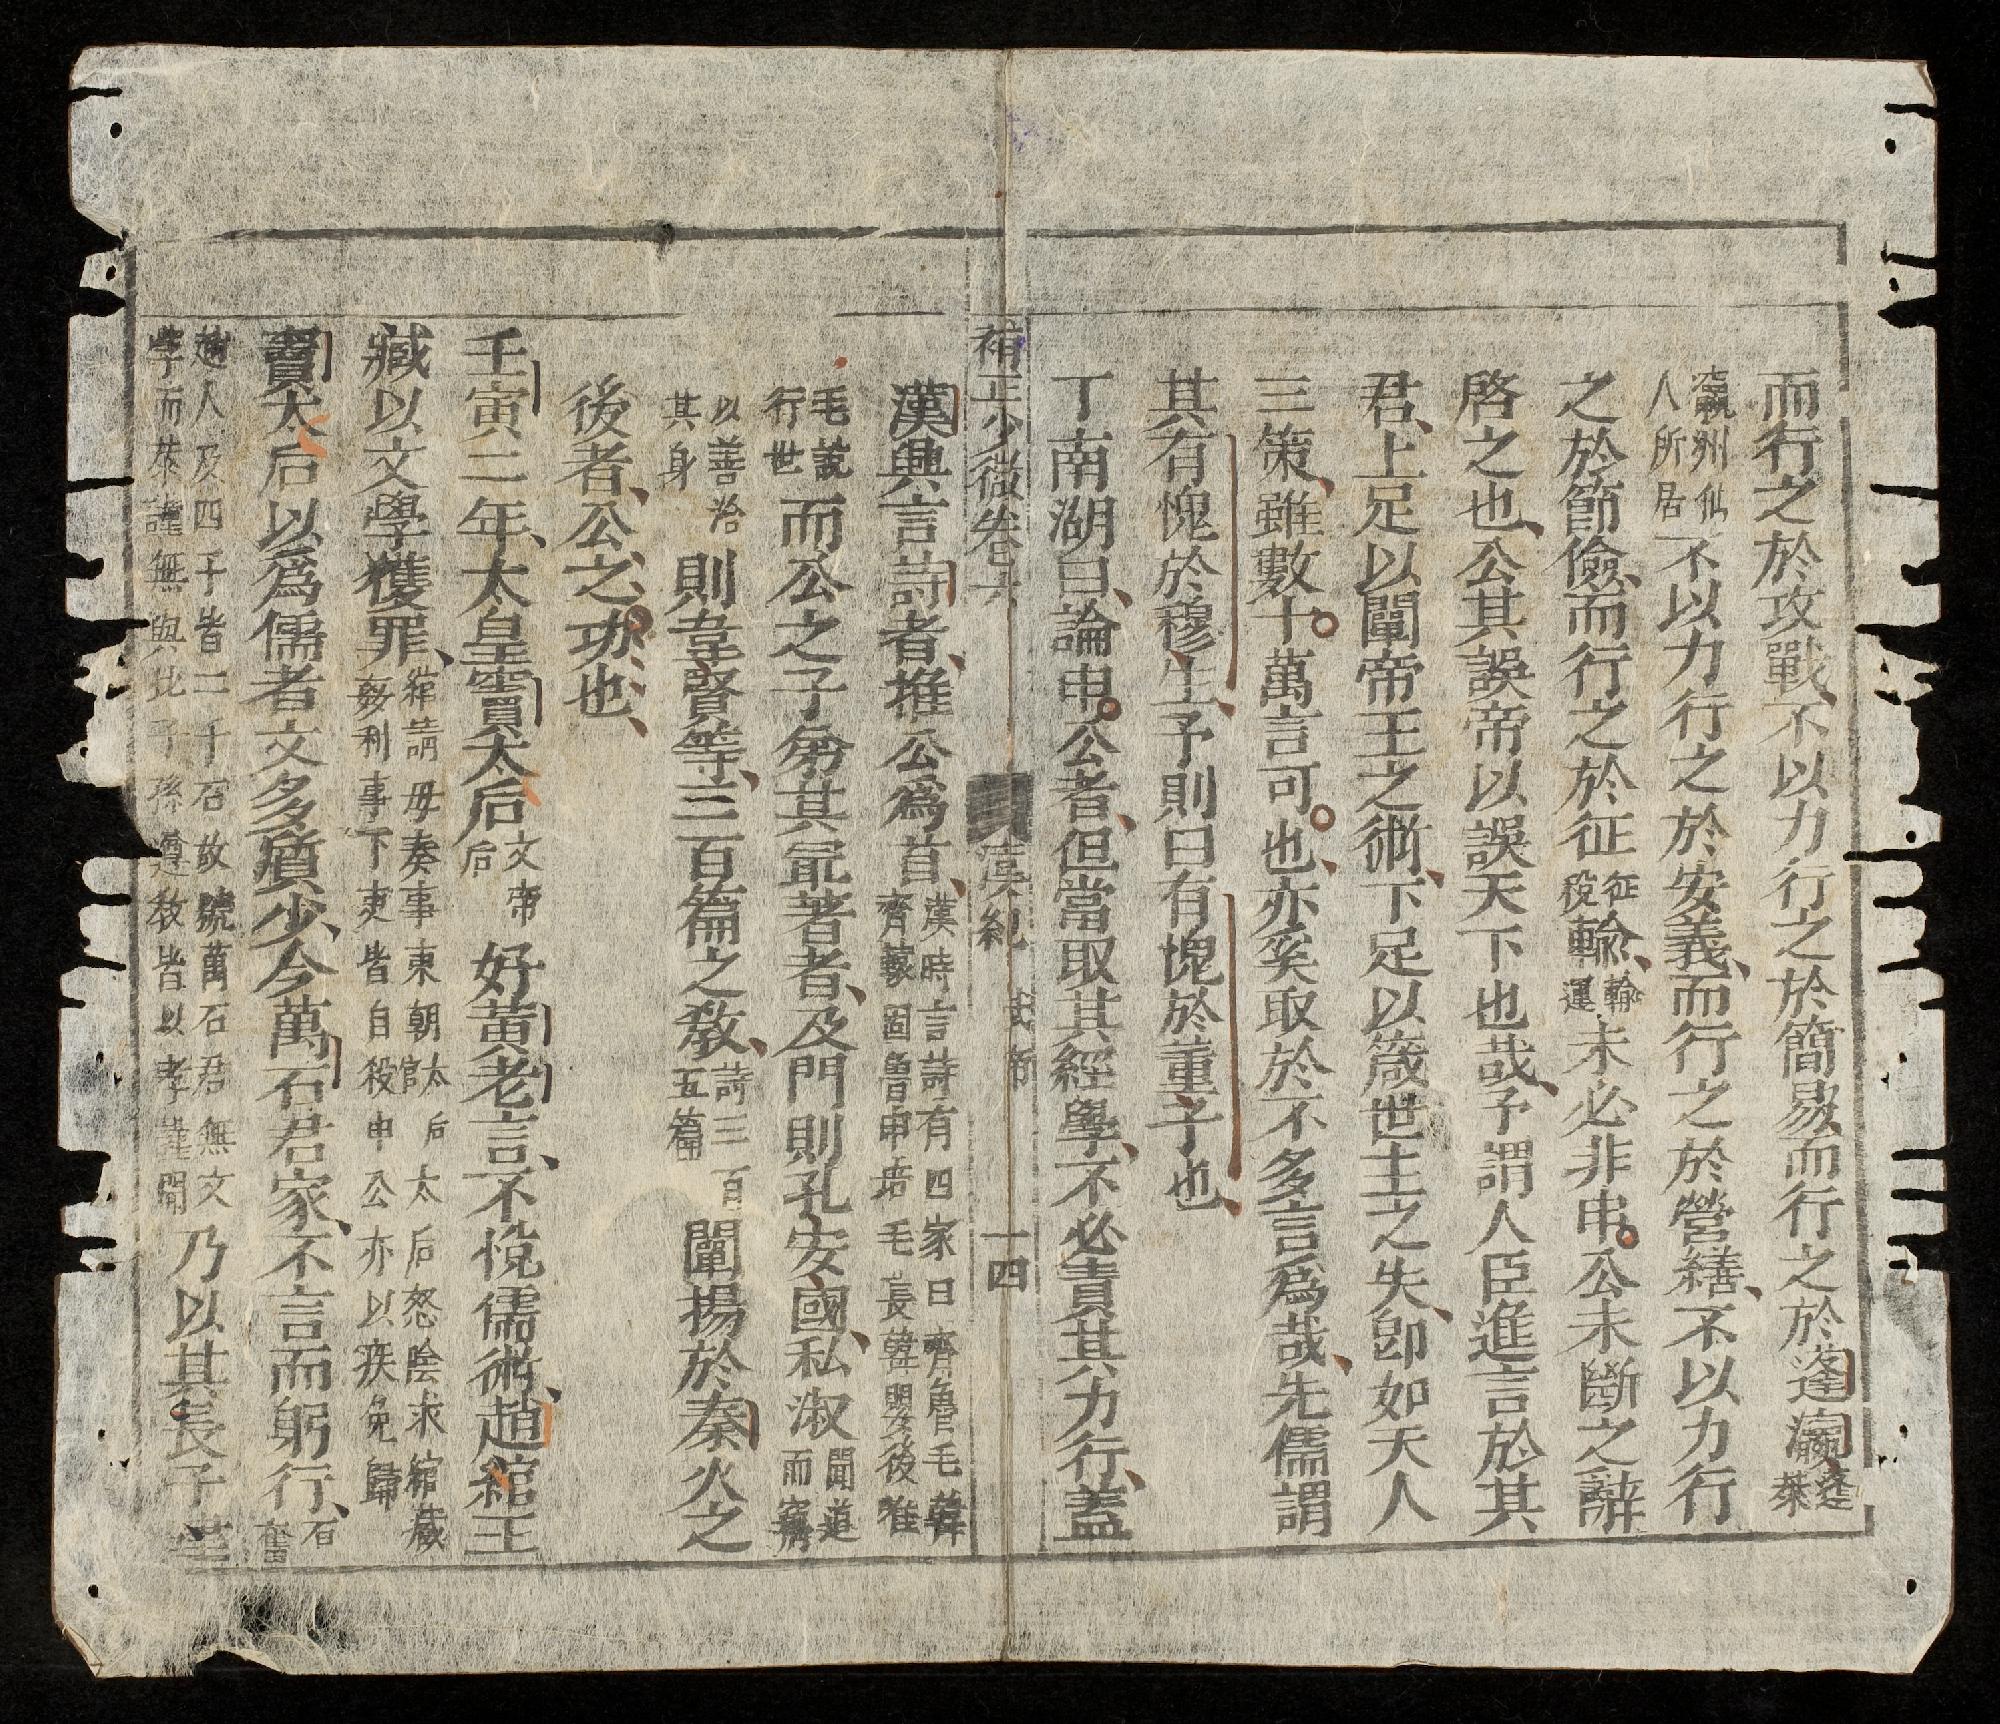 而行之於攻戰不以力行之於簡易而行之於蓬瀛蓬萊
瀛洲仙人所居不以力行之於安義而行之於營繕不以力行
之於節儉而行之於征征役輸輸運未必非申公未斷之辭
啓之也公其誤帝以誤天下也哉予謂人臣進言於其
君上足以闡帝王之術下足以箴世主之失即如天人
三策雖數十萬言可也亦奚取於不多言爲哉先儒謂
其有愧於穆生予則曰有愧於董子也
丁南湖曰論申公者但當取其經學不必責其力行蓋
補正少微卷六 漢紀 武帝 一四
漢興言詩者推公爲首漢時言詩有四家曰齊魯毛韓齊轅固魯申培毛毛長韓嬰後惟
毛說行世而公之子弟其最著者及門則孔安國私淑聞道而竊
以善治其身則韋賢等三百篇之教詩三百五篇闡揚於秦火之
後者公之功也
壬寅二年太皇竇太后文帝后好黃老言不悅儒術趙綰王
臧以文學獲罪綰請毋奏事東朝太后太后怒陰求綰臧姦利事下吏皆自殺申公亦以疾免歸
竇太后以爲儒者文多質少今萬石君家不言而躬行石奮
趙人及四子皆二千石故號萬石君無文學而恭謹無與比子孫遵教皆以孝謹聞乃以其長子建